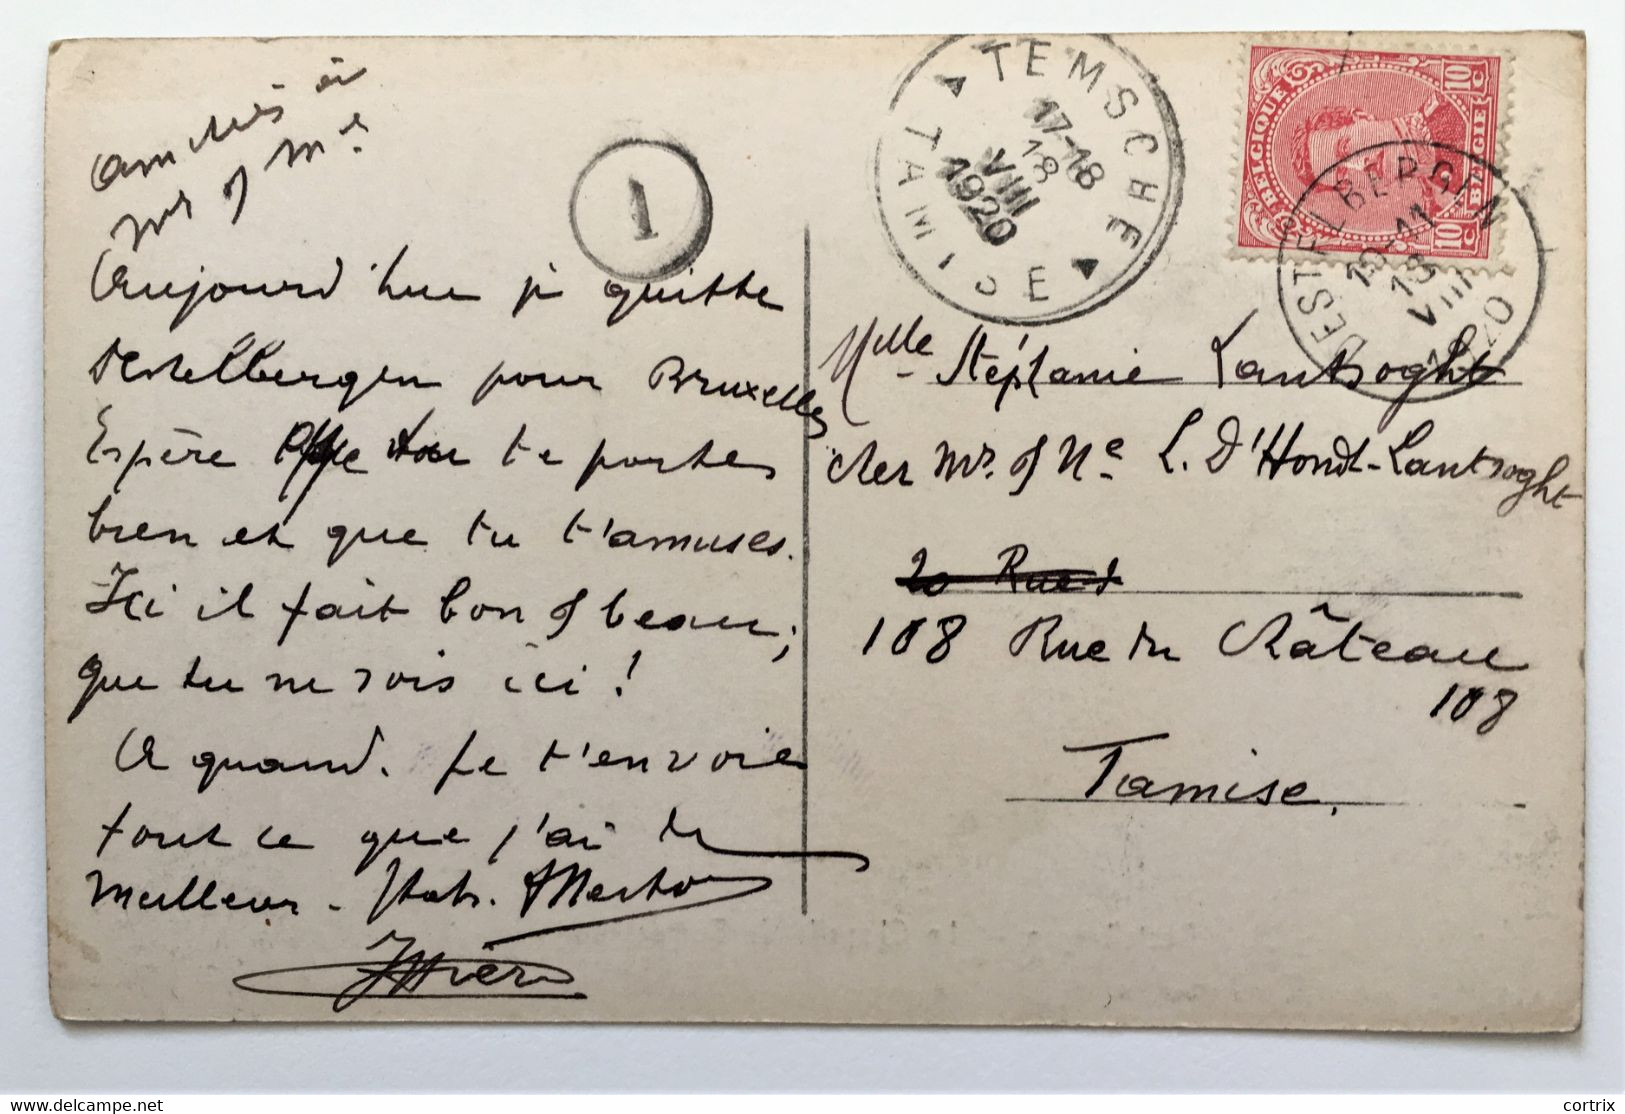 amitiés à
Mr & Me
Aujourd'hui je quitte
Destelbergen pour Bruxelles
Espère te portes
bien et que tu t'amuses.
Ici il fait bon & beau;
que tu ne sois ici !
A quand. Je t'envoie
tout ce que j'ai de
meilleur -
1
TEMSCHE
17-18
18
VIII
1920
TAMISE
BELGIQUE
BELGIË
10c
10c
DESTELBERGEN
10-11
18
VIII
1920
Mlle Stéphanie Lantsoght
chez Mr. & Me L. D'Hondt-Lantsoght
20 Rue d
108 Rue du Château
108
Tamise.
www.delcampe.net
cortrix